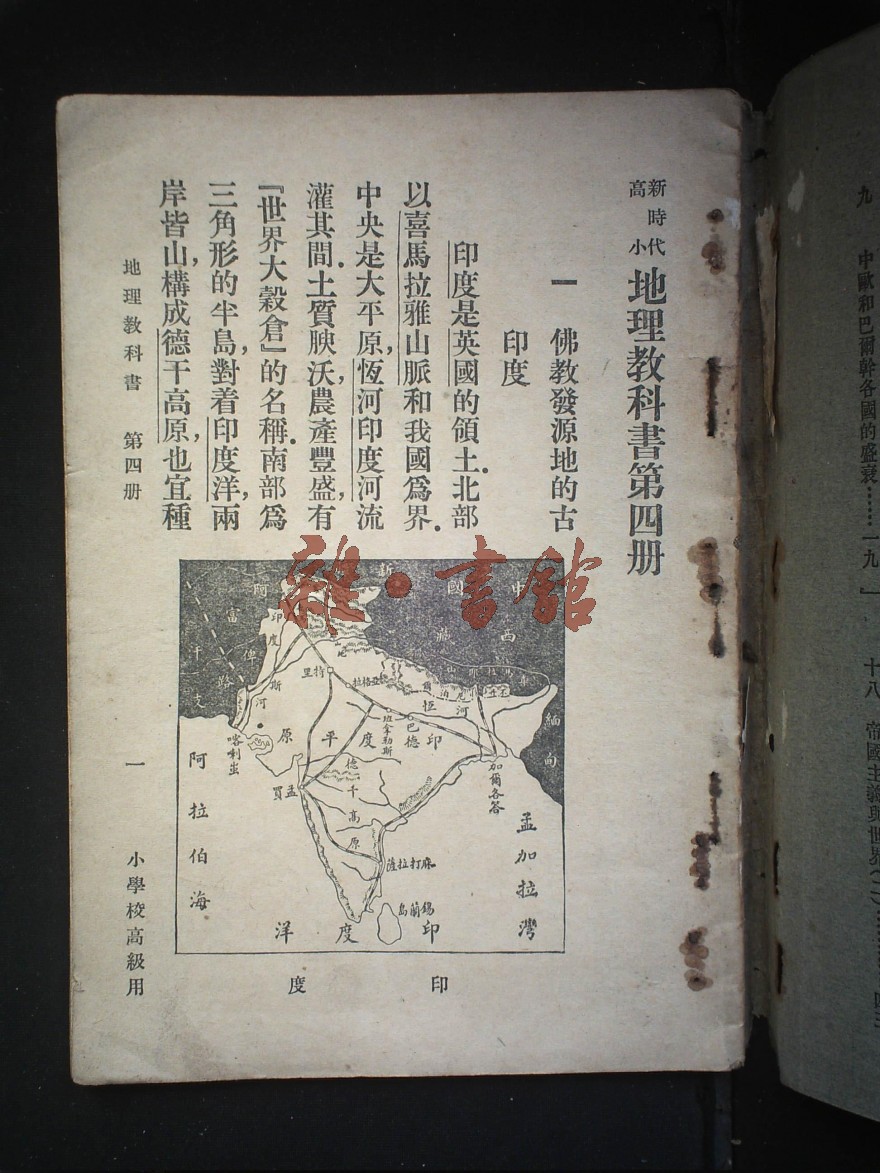 新時代
高小
地理教科書第四册
一　佛教發源地的古
印度
印度是英國的領土.北部
以喜馬拉雅山脈和我國爲界.
中央是大平原,恆河印度河流
灌其間.土質腴沃,農產豐盛,有
『世界大穀倉』的名稱.南部爲
三角形的半島,對着印度洋,兩
岸皆山,構成德干高原,也宜種
地理教科書　第四册
一
小學校高級用
雜·書館
中國
西藏
新
緬甸
印度斯河
特里
印度平原
恆河
班拿勒斯
喀利蚩
加爾各答
孟買
德干高原
麻打拉薩
錫蘭島
阿拉伯海
孟加拉灣
印度洋
印度
九　中歐和巴爾幹各國的盛衰……一九
十八　帝國主義與世界(一)